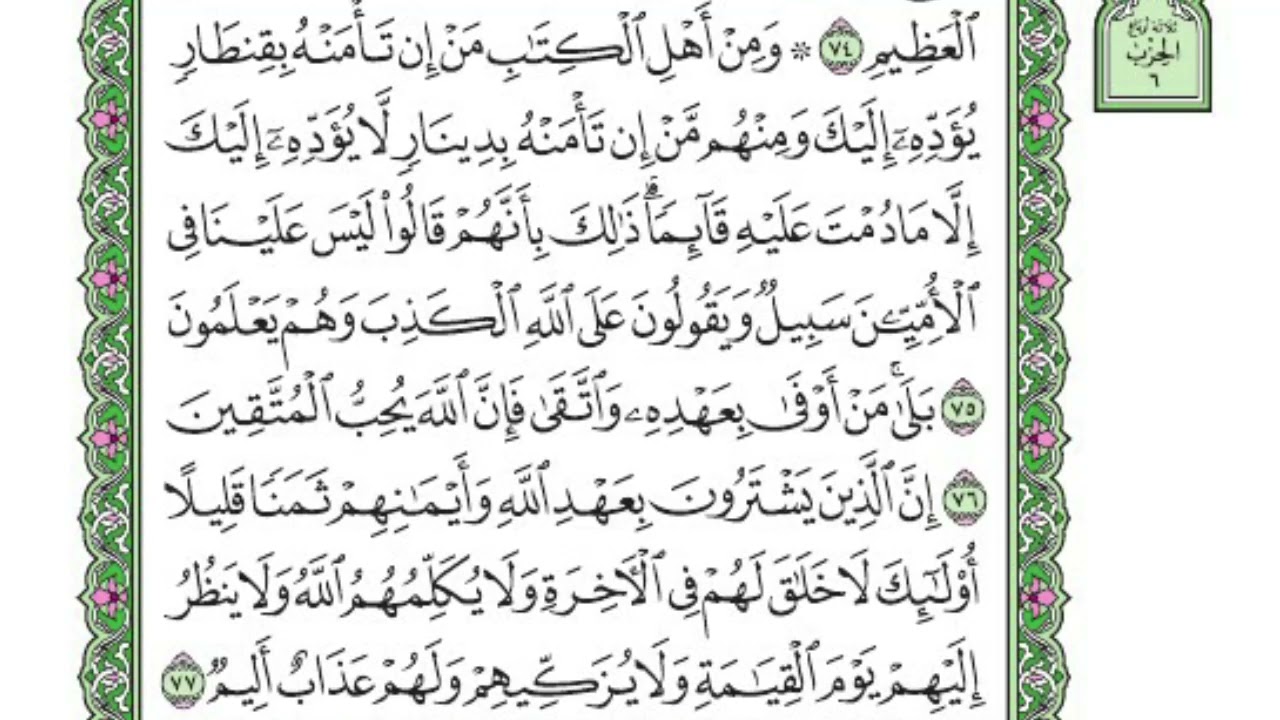 ٱلْعَظِيمِ ٧٤ ۞ وَمِنْ أَهْلِ ٱلْكِتَٰبِ مَنْ إِن تَأْمَنْهُ بِقِنطَارٍ
يُؤَدِّهِۦٓ إِلَيْكَ وَمِنْهُم مَّنْ إِن تَأْمَنْهُ بِدِينَارٍ لَّا يُؤَدِّهِۦٓ إِلَيْكَ
إِلَّا مَا دُمْتَ عَلَيْهِ قَآئِمًاۗ ذَٰلِكَ بِأَنَّهُمْ قَالُوا۟ لَيْسَ عَلَيْنَا فِى
ٱلْأُمِّيِّـۧنَ سَبِيلٌ وَيَقُولُونَ عَلَى ٱللَّهِ ٱلْكَذِبَ وَهُمْ يَعْلَمُونَ
٧٥ بَلَىٰۚ مَنْ أَوْفَىٰ بِعَهْدِهِۦ وَٱتَّقَىٰ فَإِنَّ ٱللَّهَ يُحِبُّ ٱلْمُتَّقِينَ
٧٦ إِنَّ ٱلَّذِينَ يَشْتَرُونَ بِعَهْدِ ٱللَّهِ وَأَيْمَٰنِهِمْ ثَمَنًا قَلِيلًا
أُو۟لَٰٓئِكَ لَا خَلَٰقَ لَهُمْ فِى ٱلْـَٔاخِرَةِ وَلَا يُكَلِّمُهُمُ ٱللَّهُ وَلَا يَنظُرُ
إِلَيْهِمْ يَوْمَ ٱلْقِيَٰمَةِ وَلَا يُزَكِّيهِمْ وَلَهُمْ عَذَابٌ أَلِيمٌ ٧٧
ثلاثة أرباع
الحزب
٦